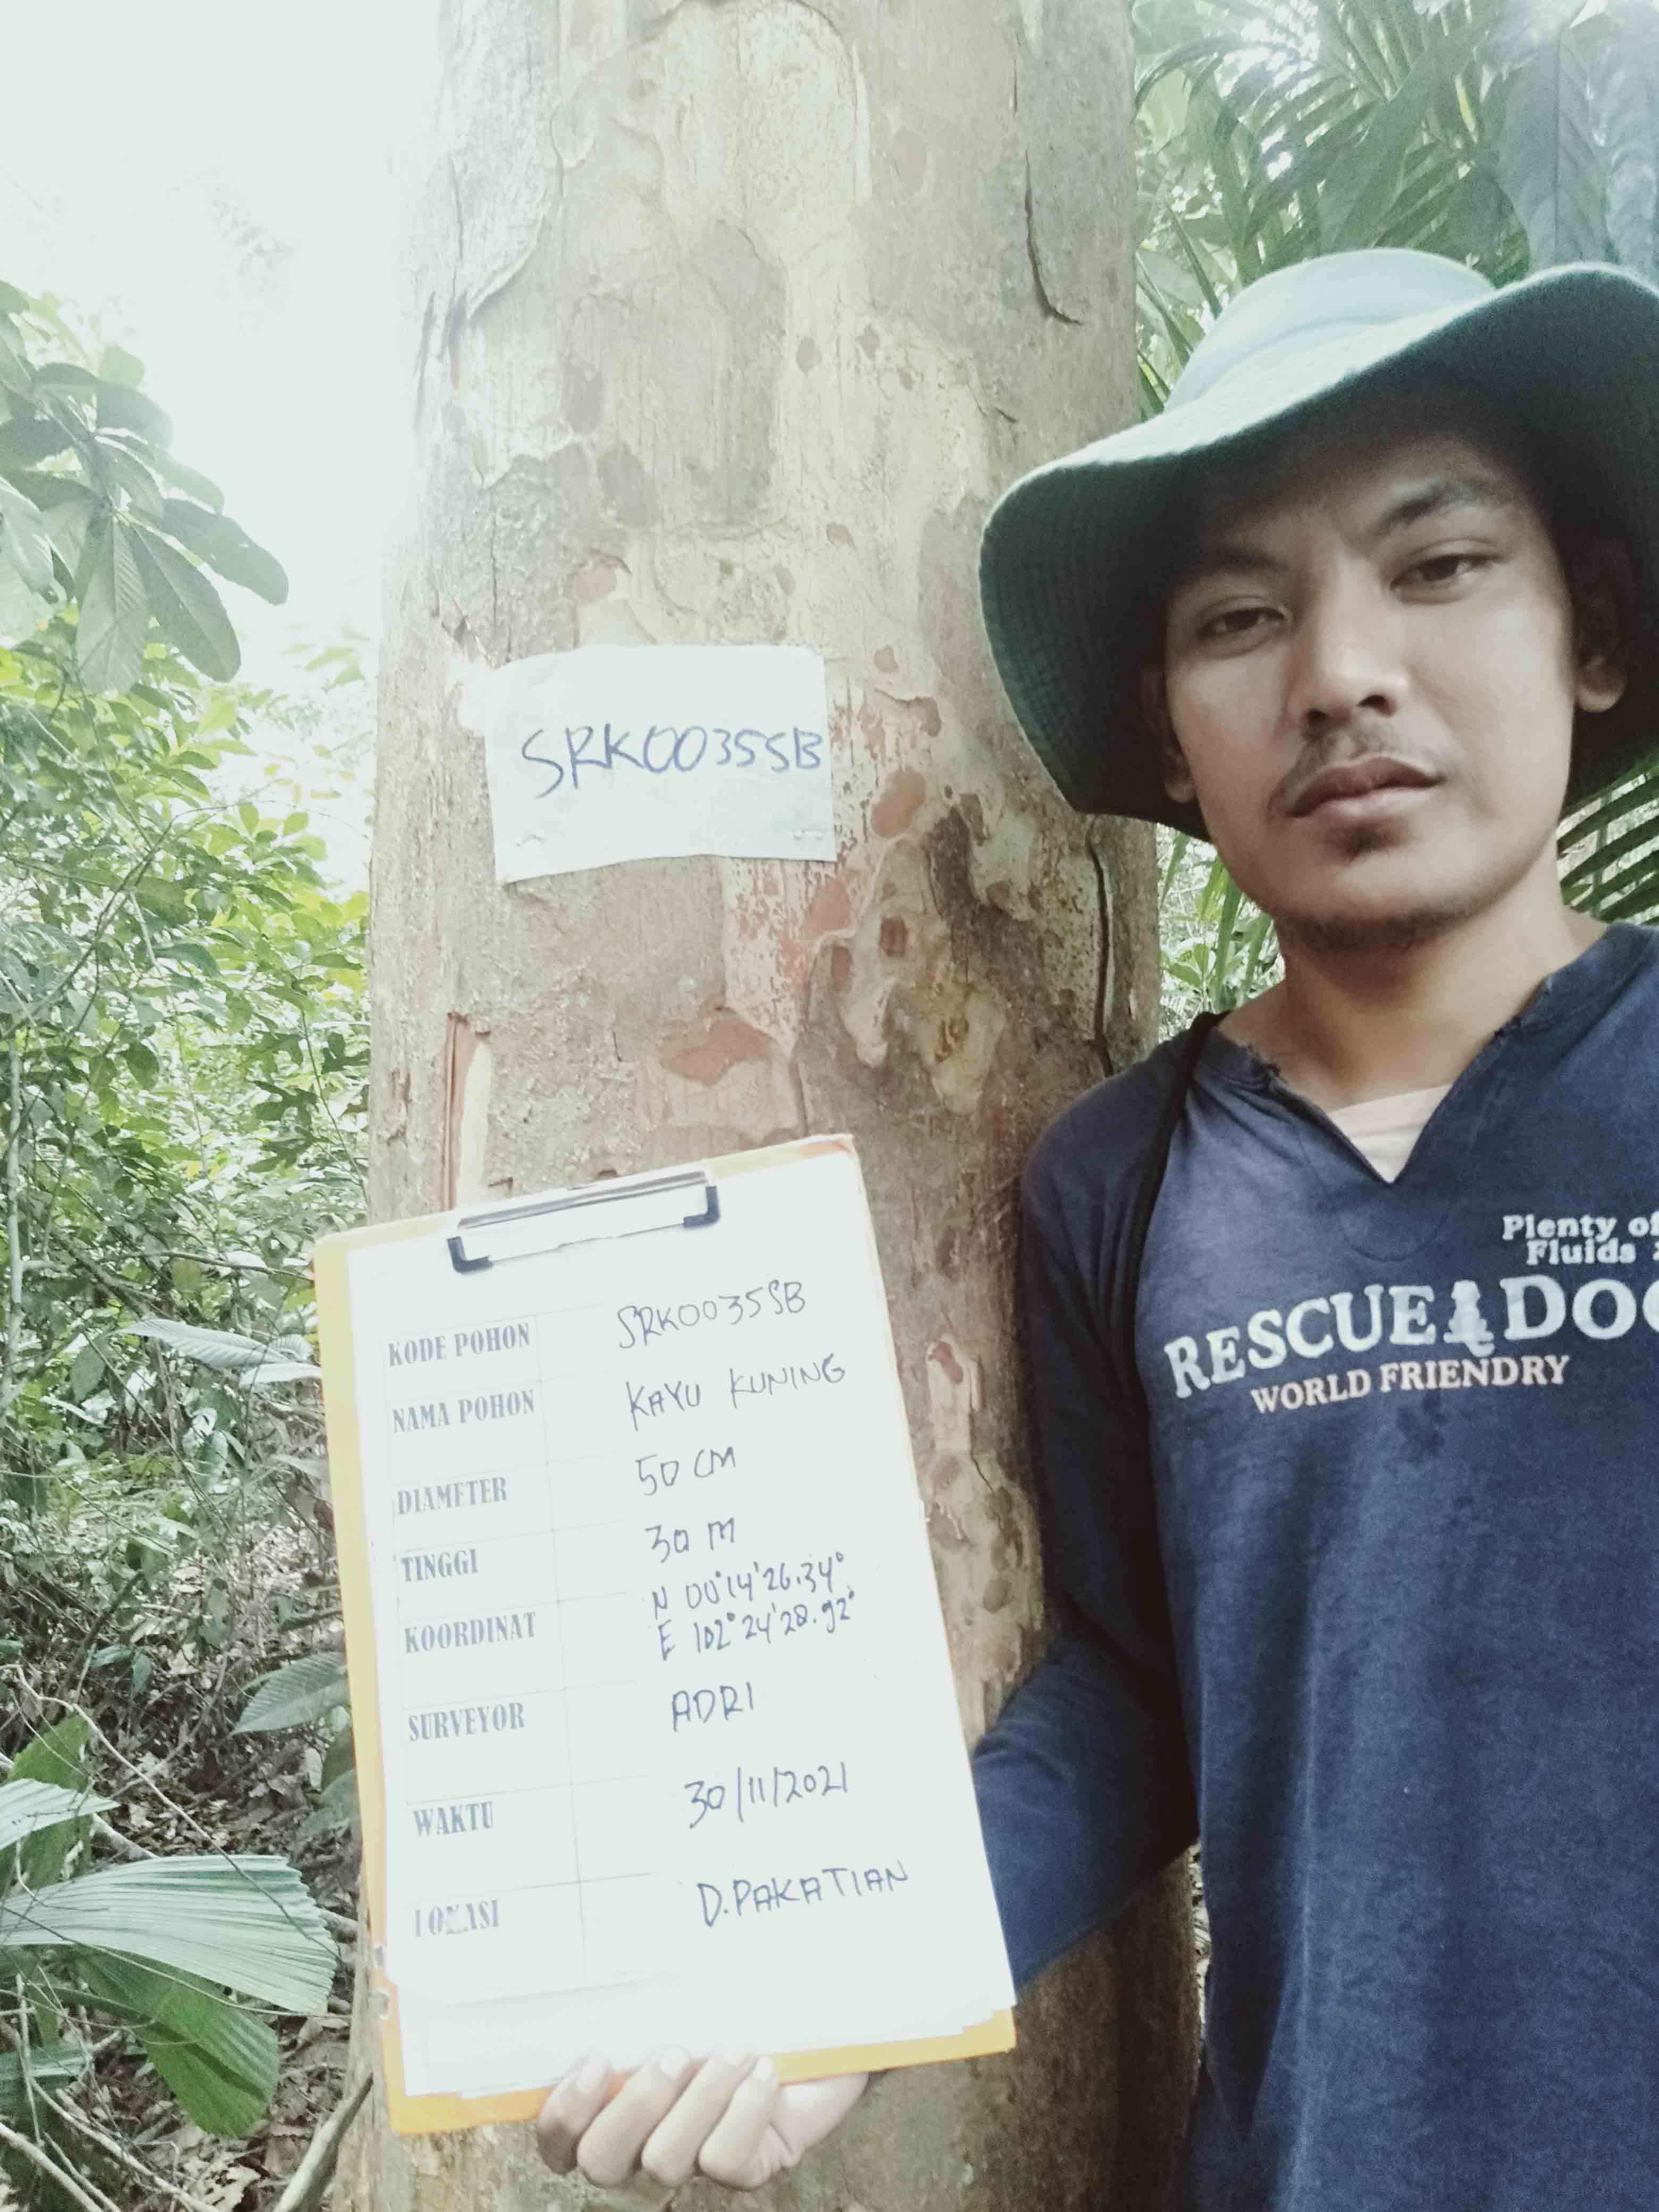 SRK0035SB
KODE POHON SRK0035SB
NAMA POHON KAYU KUNING
DIAMETER 50 CM
TINGGI 30 M
KOORDINAT N 00°14'26.34°
E 102°24'28.92°
SURVEYOR ADRI
WAKTU 30/11/2021
LOKASI D.PAKATIAN
Plenty of
Fluids
RESCUE DO
WORLD FRIENDRY